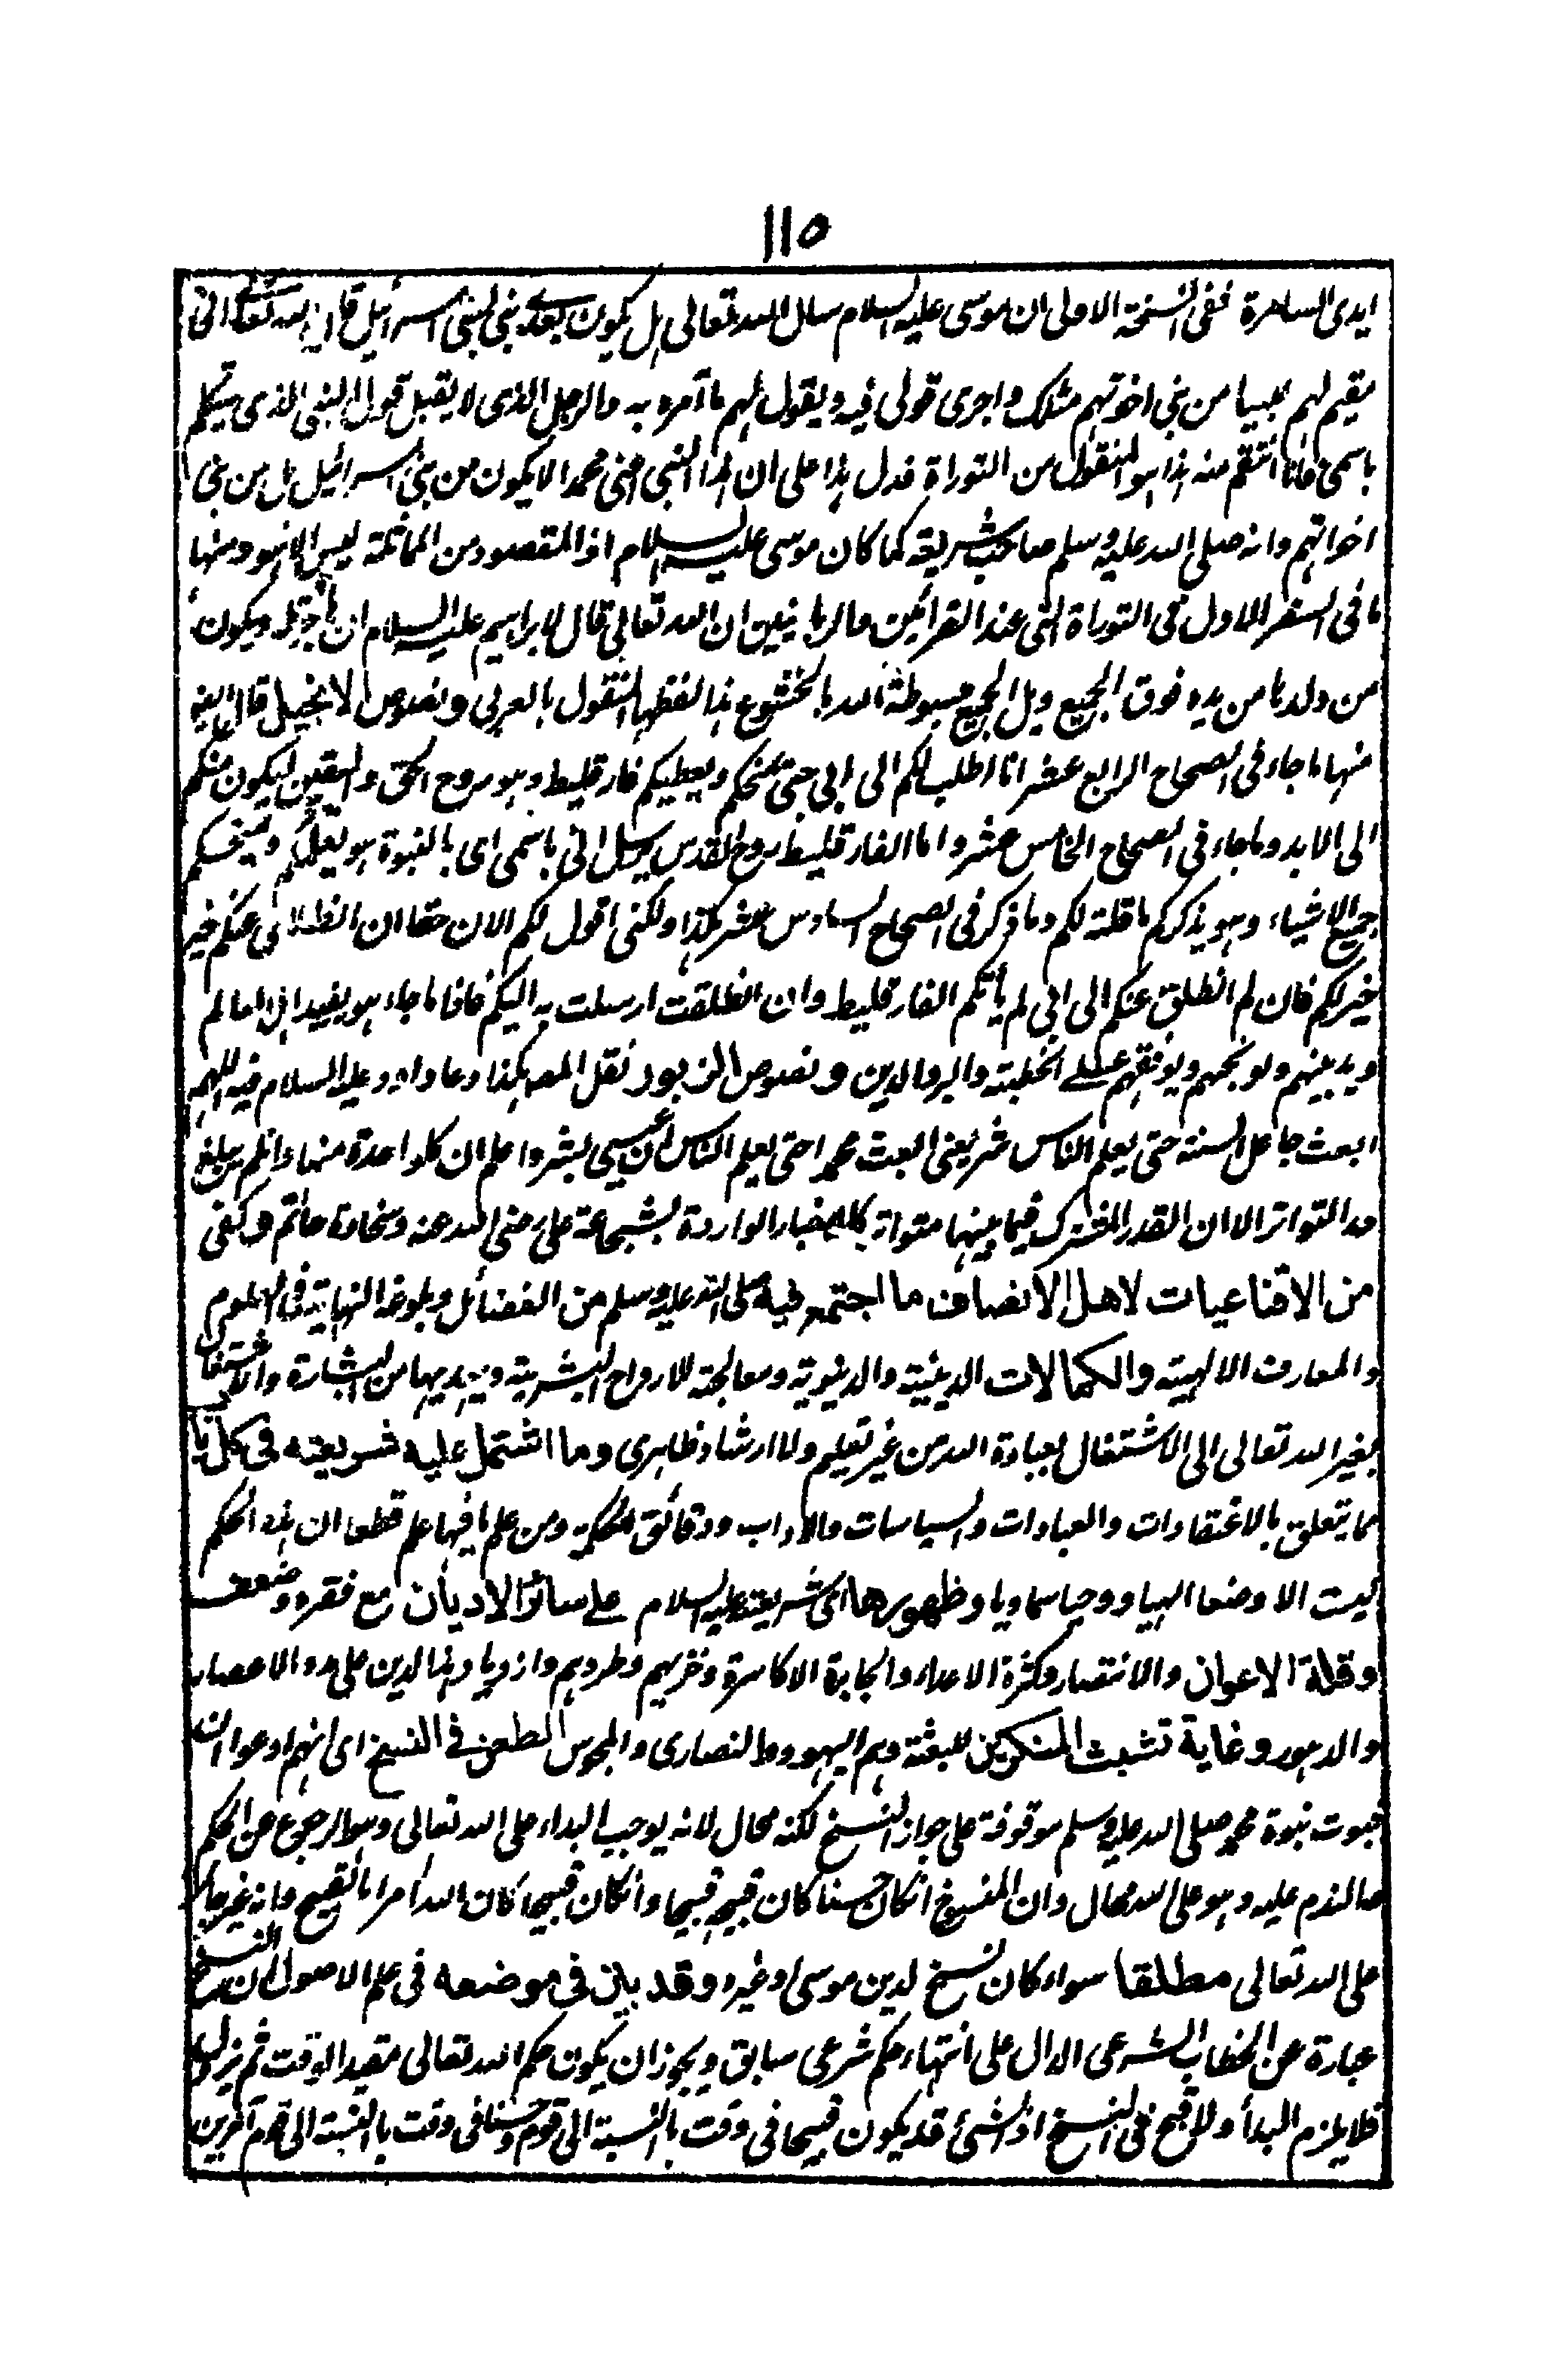 ١١٥
ايدى السامرة ففى النسخة الاولى ان موسى عليه السلام سال الله تعالى هل يكون بعدى نبى لبنى اسرائيل قال الله تعالى انى
مقيم لهم نبيا من بنى اخوتهم مثلك واجرى قولى فيه ويقول لهم ما آمره به والرجل الذى لا يقبل قول النبى الذى يتكلم
باسمى فانا انتقم منه هذا هو المنقول من التوراة فدل هذا على ان هذا النبى اعنى محمدا لا يكون من بنى اسرائيل بل من بنى
اخواتهم وانه صلى الله عليه وسلم صاحب شريعة كما كان موسى عليه السلام اذ المقصود من المماثلة ليس الا هو ومنها
ما فى السفر الاول من التوراة التى عند القرائين والربانيين ان الله تعالى قال لابراهيم عليه السلام ان هاجر تلد ويكون
من ولدها من يده فوق الجميع ويد الجميع مبسوطة اليه بالخشوع هذا لفظها المنقول بالعربى ونصوص الانجيل قال
منها ما جاء فى الصحاح الرابع عشر انا اطلب لكم الى ابى حتى يمنحكم ويعطيكم فارقليط وهو روح الحق واليقين ليكون معكم
الى الابد وما جاء فى الصحاح الخامس عشر واما الفارقليط روح القدس يرسل ابى باسمى اى بالنبوة هو يعلمكم ويمنحكم
جميع الاشياء وهو يذكركم ما قلته لكم وما ذكر فى الصحاح السادس عشر هكذا ولكنى اقول لكم الان حقا ان انطلاقى عنكم خير
خير لكم فان لم انطلق عنكم الى ابى لم يأتكم الفارقليط وان انطلقت ارسلت به اليكم فاذا ما جاء هو يفيد اهل العالم
ويدينهم ويوبخهم ويوقفهم على الخطيئة والبر والدين ونصوص الزبور نقل المص هكذا دعا داود عليه السلام فيه اللهم
ابعث جاعل السنة حتى يعلم الناس بشر يعنى ابعث محمدا حتى يعلم الناس أن عيسى بشر واعلم ان كل واحدة منها وان لم يبلغ
حد التواتر الا ان القدر المشترك فيما بينها متواتر كالاخبار الواردة بشجاعة على رضى الله عنه وسخاوة حاتم وكفى
من الاقناعيات لاهل الانصاف ما اجتمع فيه صلى الله عليه وسلم من الفضائل وبلوغه النهاية فى العلوم
والمعارف الالهية والكمالات الدينية والدنيوية ومعالجة للارواح البشرية وتهذيبها من البشارة والاشتغال
بغير الله تعالى الى الاشتغال بعبادة الله من غير تعليم ولا ارشاد ظاهرى وما اشتمل عليه شريعته فى كل باب
مما يتعلق بالاعتقادات والعبادات والسياسات والاداب ودقائق الحكمة ومن علم ما فيها علم قطعا ان هذه الحكم
ليست الا وضعا الهيا ووحيا سماويا وظهورها اى شريعته عليه السلام على سائر الاديان مع فقره وضعف
وقلة الاعوان والانتصار وكثرة الاعداء والجبابرة الاكاسرة وحزبهم وطردهم وازدياد هذا الدين على مر الاعصار
والدهور وغاية تشبث المنكرين للبعثة وهم اليهود والنصارى والمجوس الطعن فى النسخ اى انهم ادعوا ان
ثبوت نبوة محمد صلى الله عليه وسلم موقوفة على جواز النسخ لكنه محال لانه يوجب البداء على الله تعالى وهو الرجوع عن الحكم
ما الندم عليه وهو على الله محال وان المنسوخ ان كان حسنا كان قبحه قبيحا وان كان قبيحا كان الله أمرا بالقبيح وانه غير جائز
على الله تعالى مطلقا سواء كان نسخ لدين موسى او غيره وقد بين فى موضعه فى علم الاصول ان النسخ
عبارة عن الخطاب الشرعى الدال على انتهاء حكم شرعى سابق ويجوز ان يكون حكم الله تعالى مقيدا بوقت ثم يزول
فلا يلزم البدأ ولا قبح فى النسخ اذ الشئ قد يكون قبيحا فى وقت بالنسبة الى قوم وحسنا فى وقت بالنسبة الى قوم آخرين